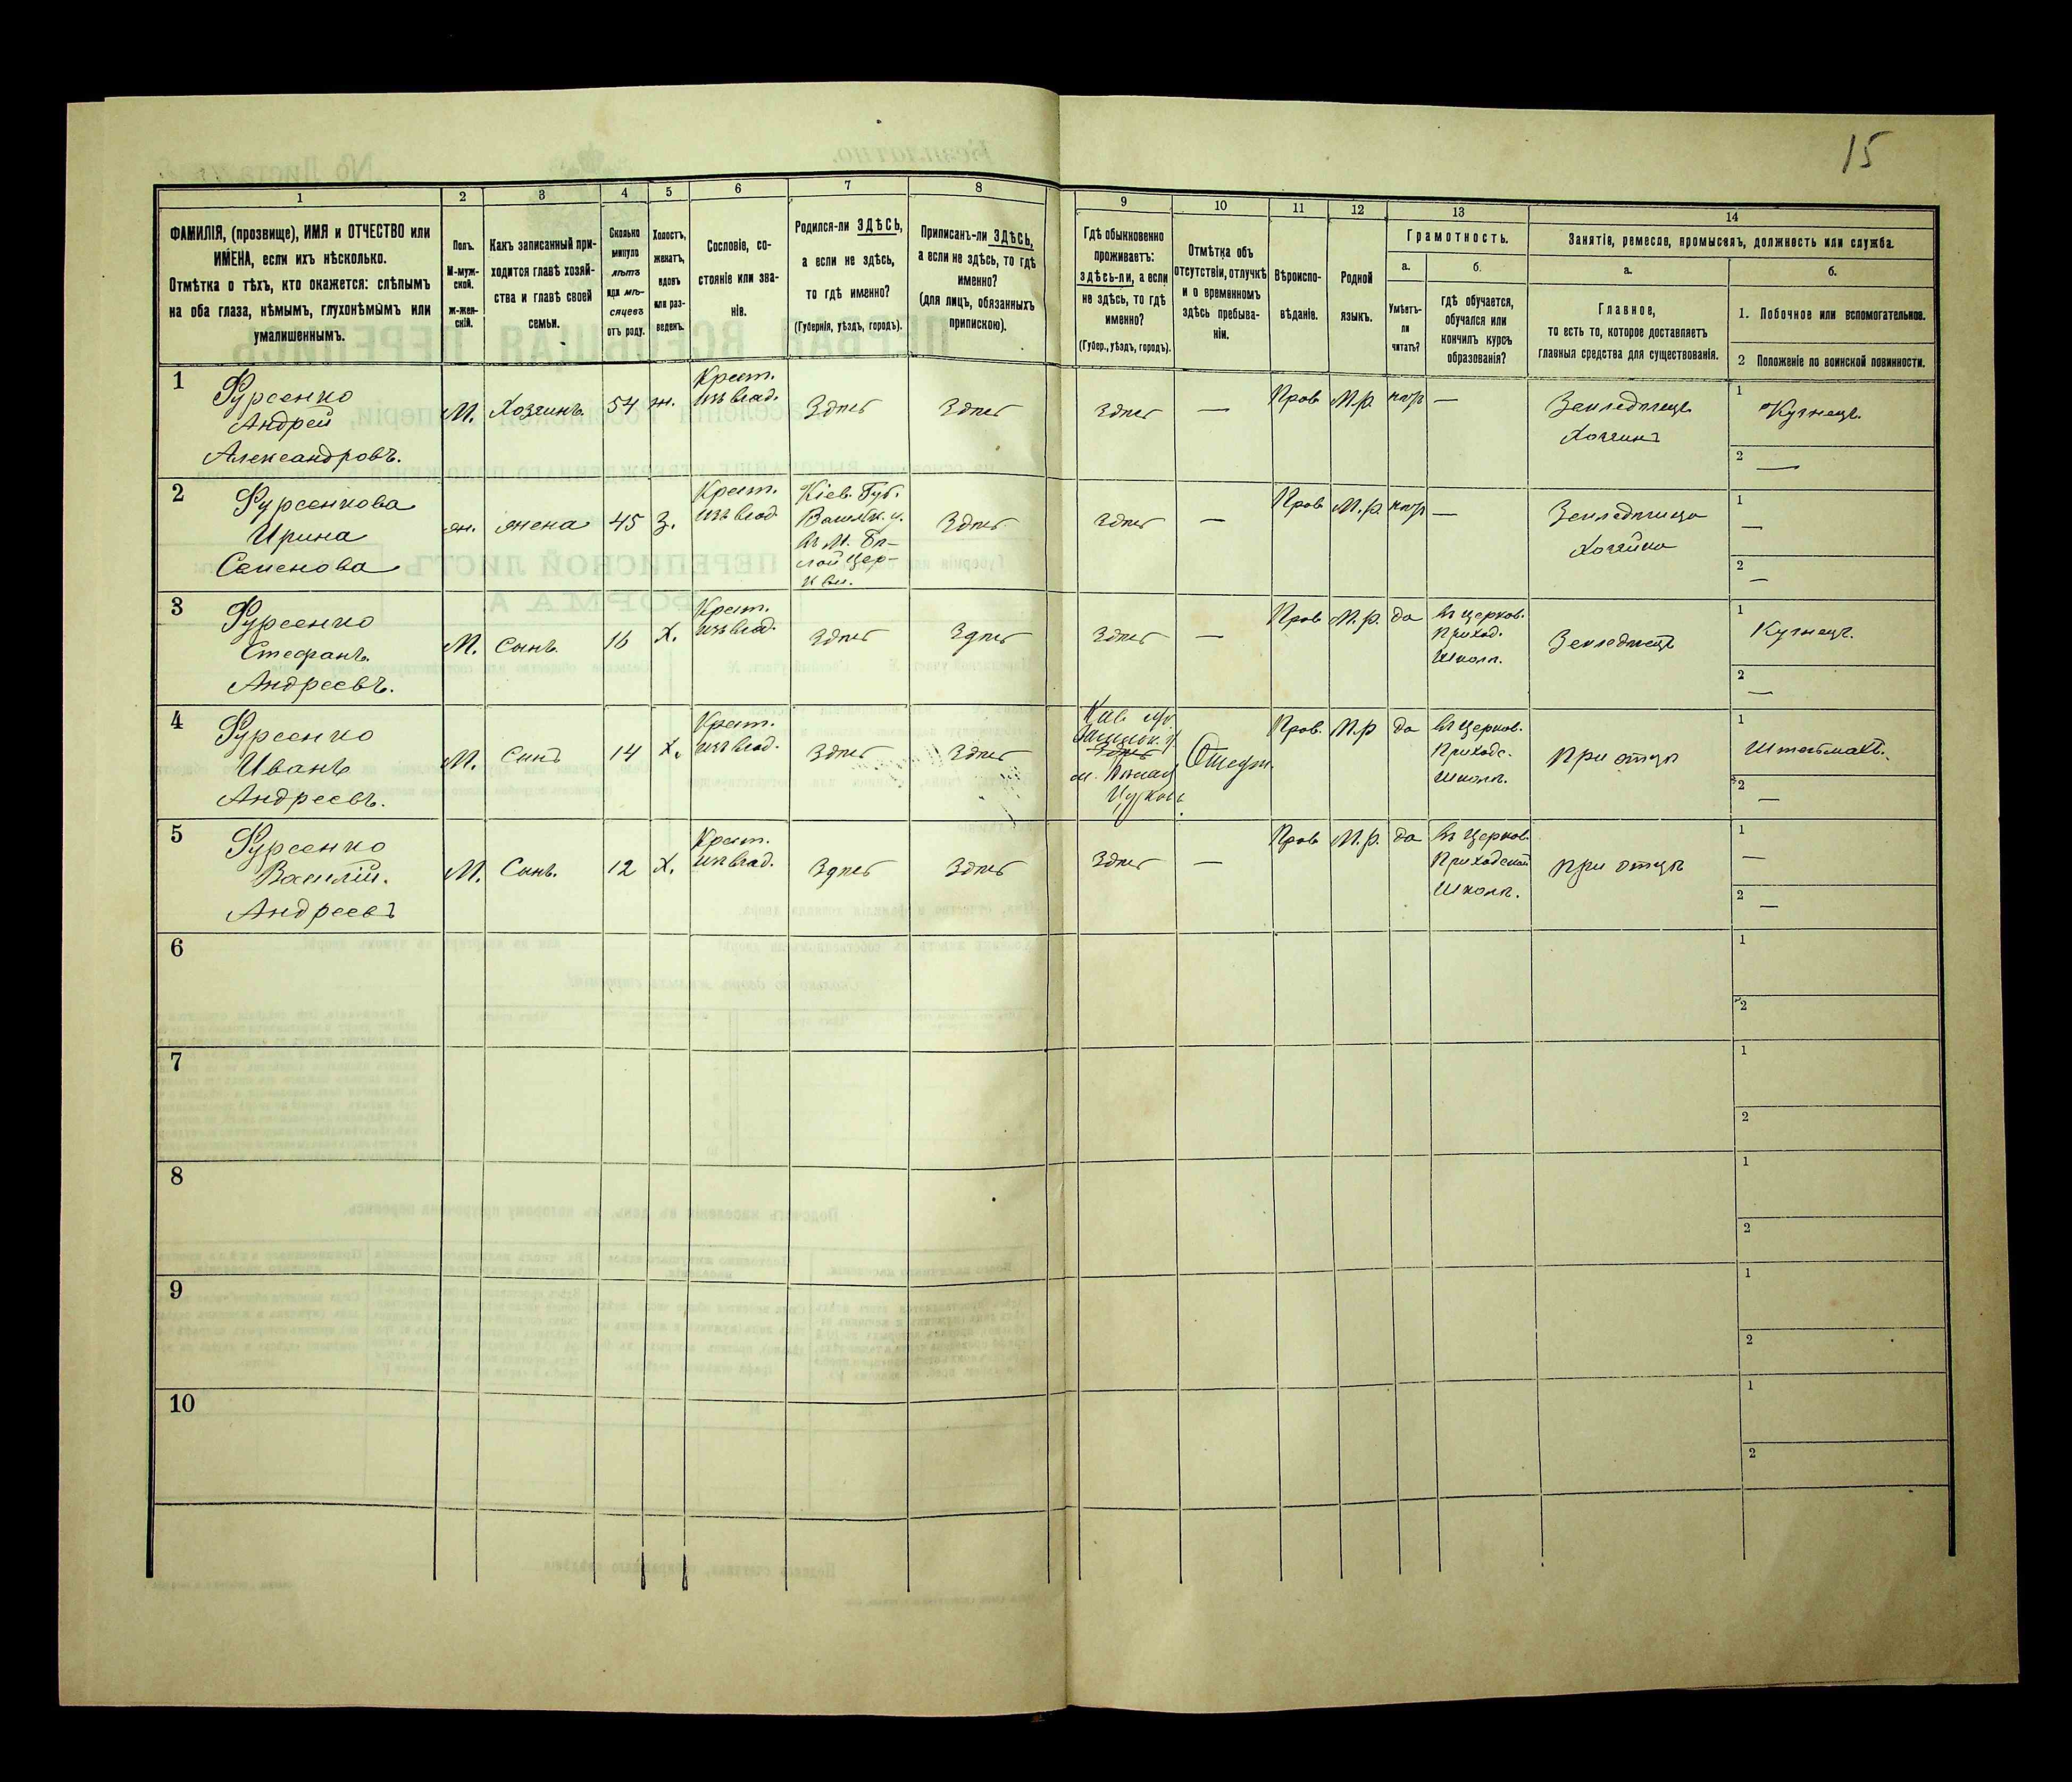 15
1
2
3
4
5
6
7
8
9
10
11
12
13
14
ФАМИЛІЯ, (прозвище), ИМЯ и ОТЧЕСТВО или
ИМЕНА, если ихъ нѣсколько.
Отмѣтка о тѣхъ, кто окажется: слѣпымъ
на оба глаза, нѣмымъ, глухонѣмымъ или
умалишеннымъ.
Полъ.
М-муж-
ской.
ж-жен-
скій.
Какъ записанный при-
ходится главѣ хозяй-
ства и главѣ своей
семьи.
Сколько
минуло
лѣтъ
или мѣ-
сяцевъ
отъ роду.
Холостъ,
женатъ,
вдовъ
или раз-
веденъ.
Сословіе, со-
стояніе или зва-
ніе.
Родился-ли ЗДѢСЬ,
а если не здѣсь,
то гдѣ именно?
(Губернія, уѣздъ, городъ).
Приписанъ-ли ЗДѢСЬ,
а если не здѣсь, то гдѣ
именно?
(для лицъ, обязанныхъ
припискою).
Гдѣ обыкновенно
проживаетъ:
здѣсь-ли, а если
не здѣсь, то гдѣ
именно?
(Губер., уѣздъ, городъ).
Отмѣтка объ
отсутствіи, отлучкѣ
и о временномъ
здѣсь пребыва-
ніи.
Вѣроиспо-
вѣданіе.
Родной
языкъ.
Грамотность.
а.
Умѣетъ-
ли
читать?
б.
гдѣ обучается,
обучался или
кончилъ курсъ
образованія?
Занятіе, ремесло, промыселъ, должность или служба.
а.
Главное,
то есть то, которое доставляетъ
главныя средства для существованія.
б.
1. Побочное или вспомогательное.
2 Положеніе по воинской повинности.
1
Фурсенко
Андрей
Александровъ.
М.
Хозяинъ
54
ж.
Крест.
изъ влад.
Здѣсь
Здѣсь
Здѣсь
—
Прав
М.р.
—
Земледѣлецъ
Хозяинъ
1
Кузнецъ.
2
—
2
Фурсенкова
Ирина
Семенова
ж.
жена
45
З.
Крест.
изъ влад.
Кіев. Губ.
Васильк. у.
въ М. Бѣ-
лой Цер-
кви.
Здѣсь
Здѣсь
—
Прав
М.р.
—
Земледѣлица
Хозяйка
1
—
2
—
3
Фурсенко
Стефанъ
Андреевъ.
М.
Сынъ
16
Х.
Крест.
изъ влад.
Здѣсь
Здѣсь
Здѣсь
—
Прав
М.р.
да
въ Церков.
Приход.
Школѣ.
Земледѣлецъ
1
Кузнецъ.
2
—
4
Фурсенко
Иванъ
Андреевъ.
М.
Сынъ
14
Х.
Крест.
изъ влад.
Здѣсь
Здѣсь
Здѣсь
Прав.
М.р
да
въ Церков.
Приходс.
Школѣ.
При отцѣ
1
Штельмахъ.
2
—
5
Фурсенко
Василій.
Андреевъ
М.
Сынъ.
12
Х.
Крест.
изъ влад.
Здѣсь
Здѣсь
Здѣсь
—
Прав
М.р.
да
въ Церков.
Приходской
Школѣ.
При отцѣ
1
—
2
—
6
1
2
7
1
2
8
1
2
9
1
2
10
1
2